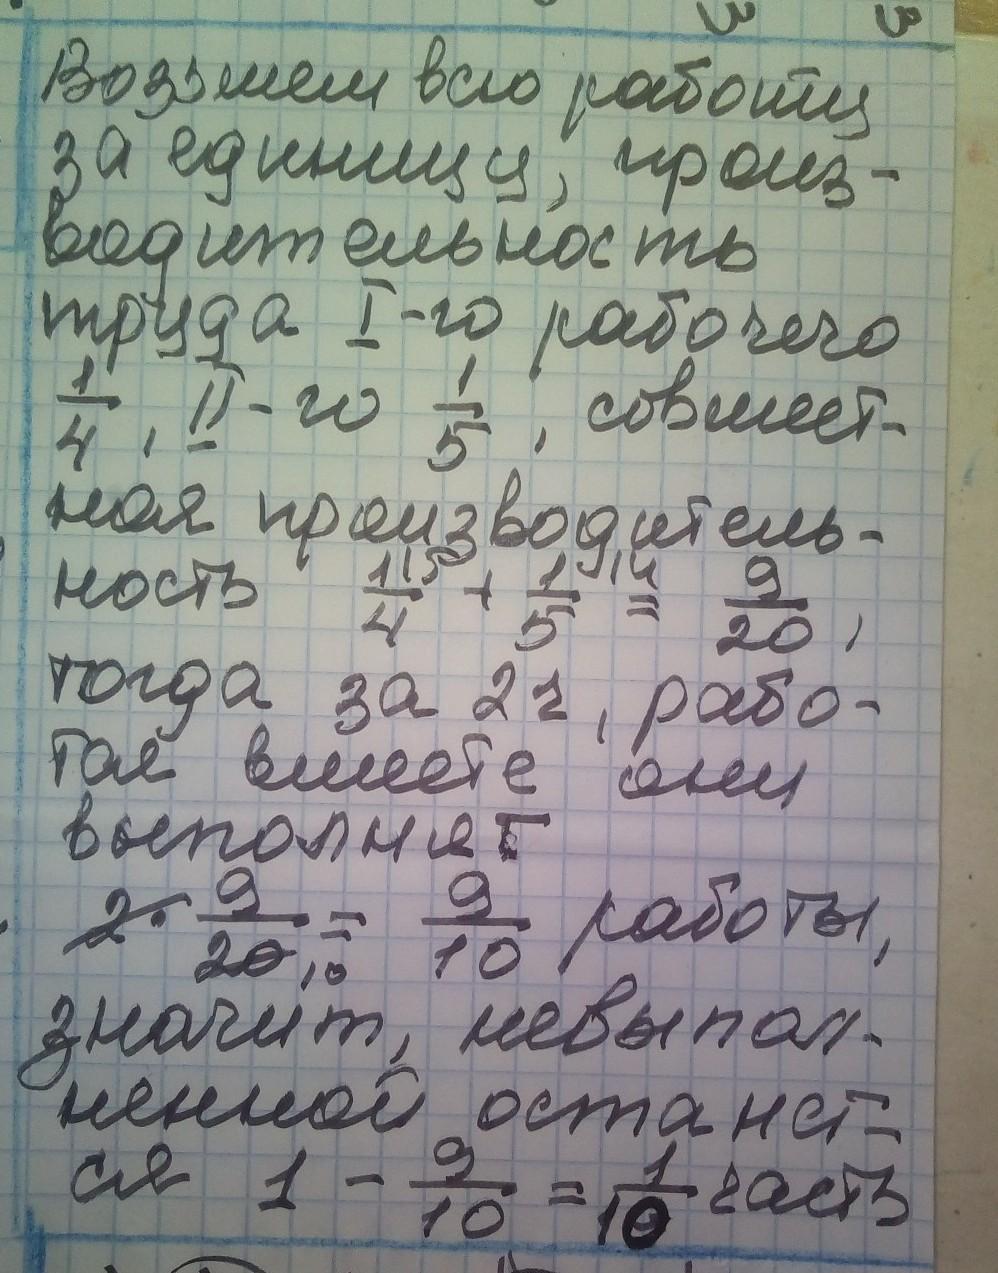 Возьмем всю работу
за единицу, произ-
водительность
труда I-го рабочего
1/4, II-го 1/5, совмест-
ная производитель-
ность 1/4 |5 + 1/5 |4 = 9/20,
тогда за 2 ч, рабо-
тая вместе они
выполнят
2 · 9/20 10 = 9/10 работы,
значит, невыпол-
ненной останет-
ся 1 - 9/10 = 1/10 часть